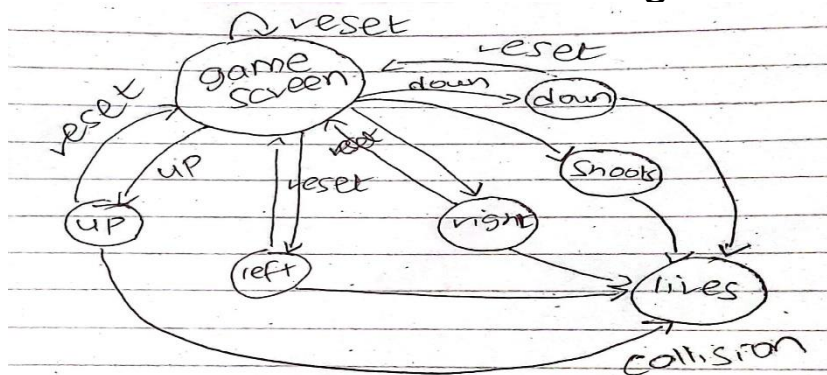 reset
game
screen
reset
down
down
reset
up
reset
reset
shoots
up
right
left
lives
collision